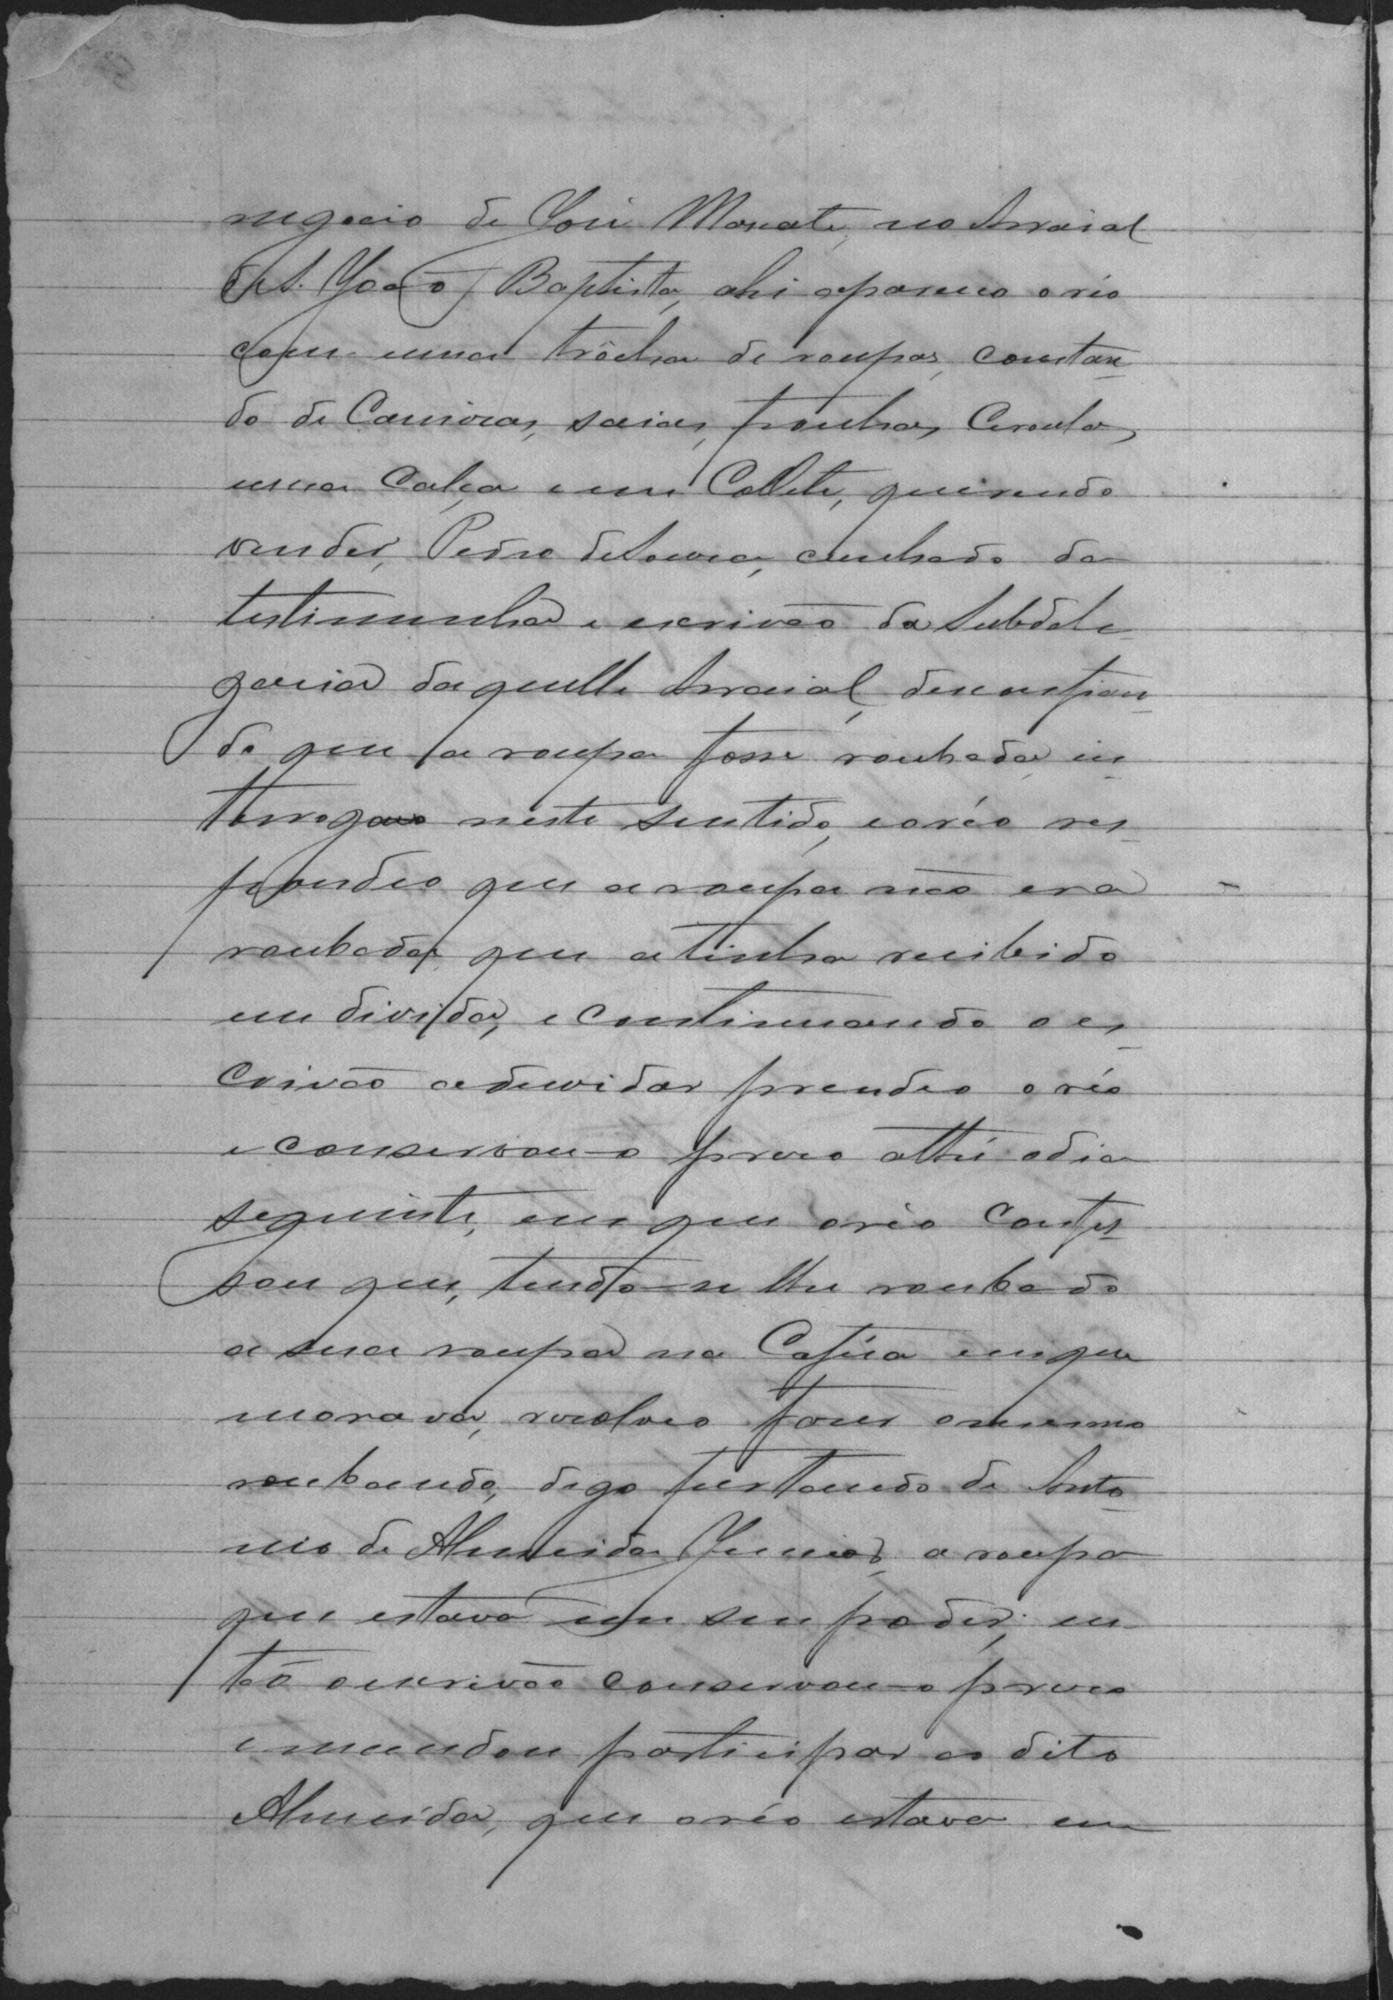 negocio de José Monate, no Arraial
de S. João Baptista, ahi apareceo o réo
com uma trôcha de roupas, constan-
do de Camizas, saias, fronhas, Ceroulas,
uma Calça e um Collete, querendo
vender, Pedro de Souza, cunhado da
testimunha e escrivão da Subdele-
gacia daquelle Arraial, desconfian-
do que a roupa fosse roubada in-
terrogou neste sentido, e o réo res-
pondeo que a roupa não era
roubada que a tinha recibido
em divida, e continuando o es-
crivão a duvidar prendeo o réo
e conservou-o prezo athé o dia
seguinte, em que o réo confes-
sou que, tendo-se lhe roubado
a sua roupa na Cafúa em que
morava, rezolveo fazer o mesmo
roubando, digo furtando de Anto-
nio de Almeida Junior, a roupa
que estava em seu poder; en-
tão o escrivão conservou-o prezo
e mandou participar ao dito
Almeida, que o réo estava em